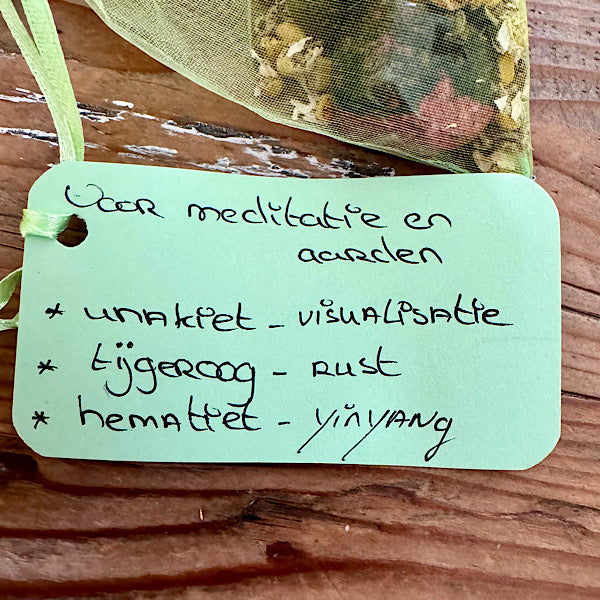 Voor meditatie en
aarden
* unakiet - visualisatie
* tijgeroog - rust
* hematiet - yinyang